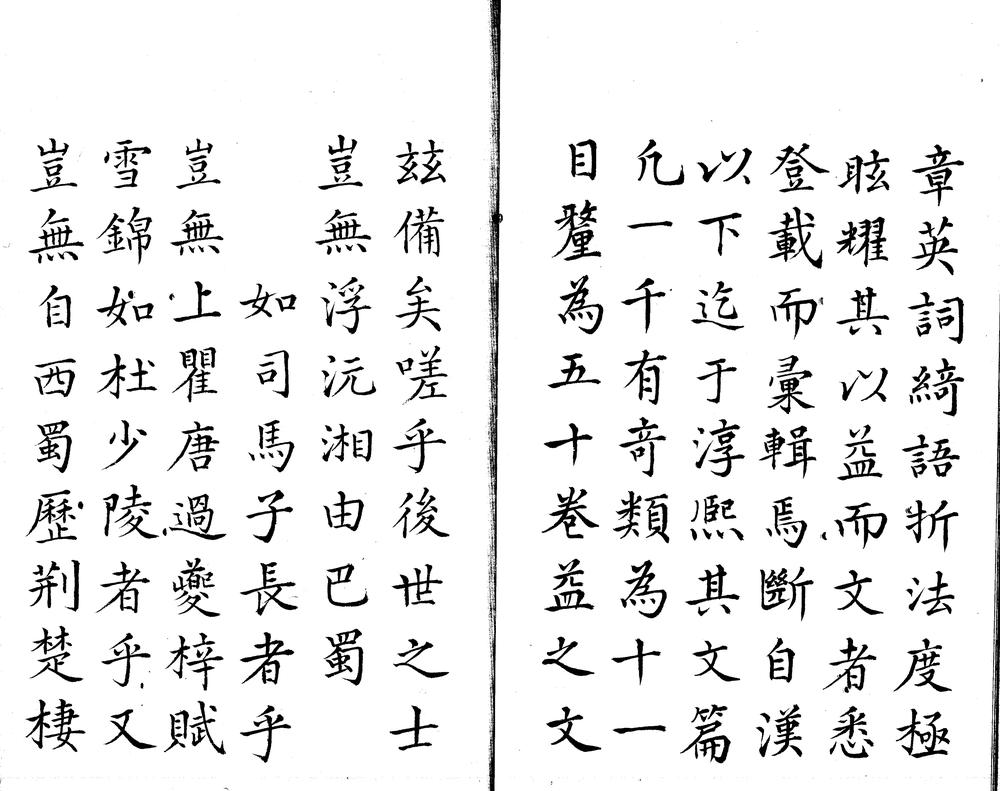 章英詞綺語折法度極
眩耀其以益而文者悉
登載而彙輯焉斷自漢
以下迄于淳熙其文篇
凡一千有竒類為十一
目釐為五十巻益之文
玆備矣嗟乎後世之士
豈無浮沅湘由巴蜀
如司馬子長者乎
豈無上瞿唐過夔梓賦
雪錦如杜少陵者乎又
豈無自西蜀歷荆楚棲